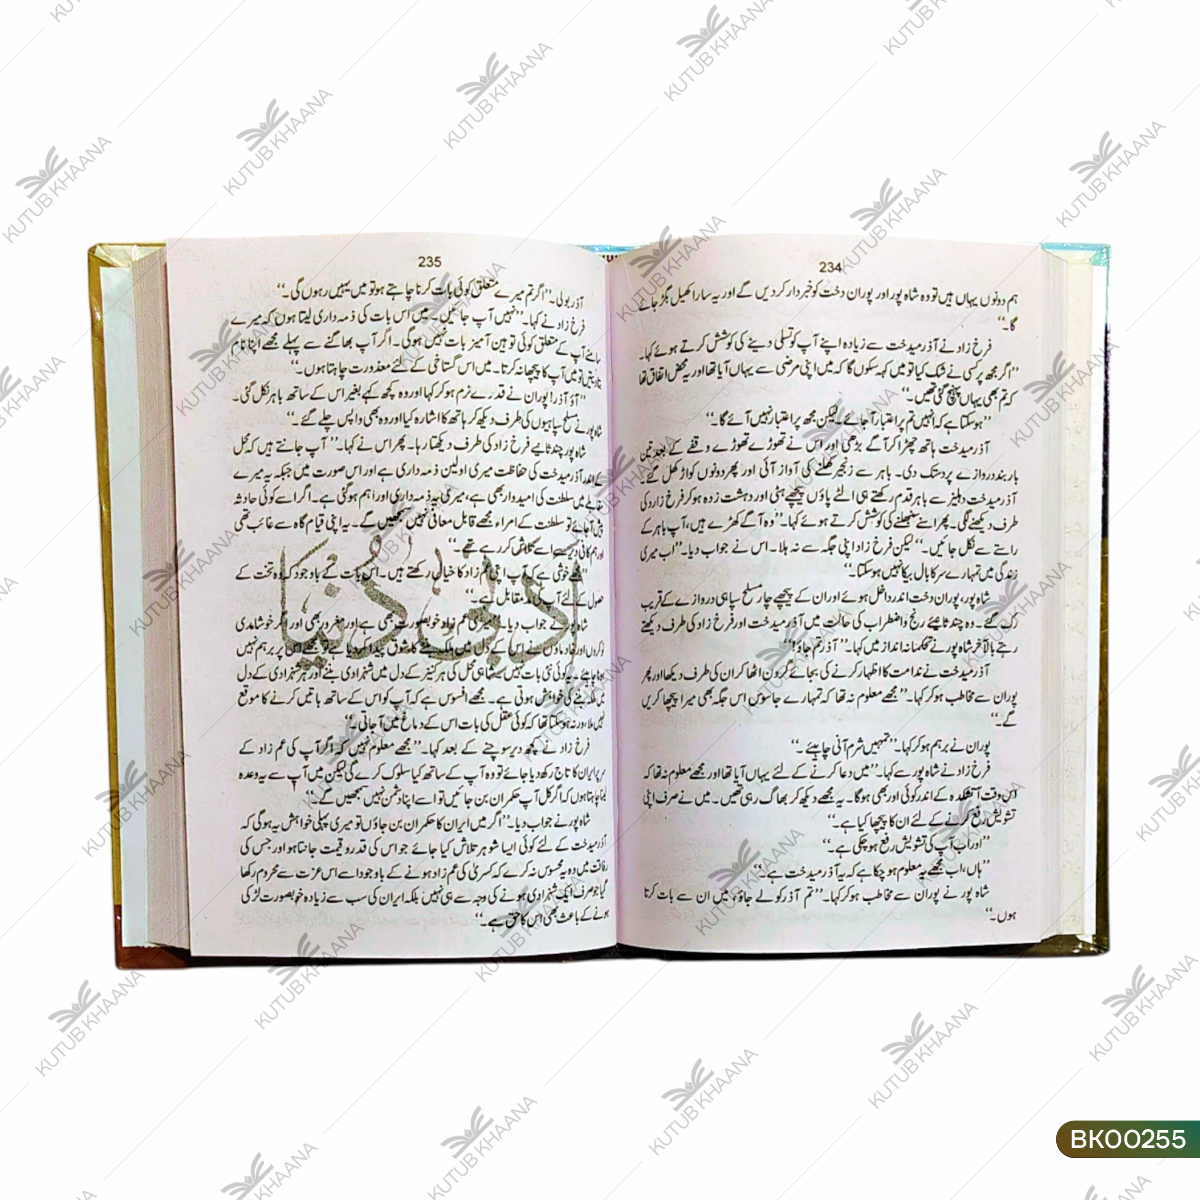 234
ہم دونوں یہاں ہیں تو وہ شاہ پور اور پوران دخت کو خبردار کردیں گے اور یہ سارا کھیل بگڑ جائے
گا۔‘‘
فرخ زاد نے آذرمیدخت سے زیادہ اپنے آپ کو تسلی دینے کی کوشش کرتے ہوئے کہا۔
’’اگر مجھ پر کسی نے شک کیا تو میں کہہ سکوں گا کہ میں اپنی مرضی سے یہاں آیا تھا اور یہ محض اتفاق تھا
کہ تم بھی یہاں پہنچ گئی تھیں۔‘‘
’’ہوسکتا ہے کہ انہیں تم پر اعتبار آجائے لیکن مجھ پر اعتبار نہیں آئے گا۔‘‘
آذرمیدخت ہاتھ چھڑا کر آگے بڑھی اور اس نے تھوڑے تھوڑے وقفے کے بعد تین
بار بند دروازے پر دستک دی۔ باہر سے زنجیر کھلنے کی آواز آئی اور پھر دونوں کواڑ کھل گئے۔
آذرمیدخت دہلیز سے باہر قدم رکھتے ہی الٹے پاؤں پیچھے ہٹی اور دہشت زدہ ہوکر فرخ زاد کی
طرف دیکھنے لگی۔ پھر اسنے سنبھلنے کی کوشش کرتے ہوئے کہا۔’’وہ آگے کھڑے ہیں، آپ باہر کے
راستے سے نکل جائیں۔‘‘ لیکن فرخ زاد اپنی جگہ سے نہ ہلا۔ اس نے جواب دیا۔’’اب میری
زندگی میں تمہارے سر کا بال بیکا نہیں ہوسکتا۔‘‘
شاہ پور، پوران دخت اندر داخل ہوئے اور ان کے پیچھے چار مسلح سپاہی دروازے کے قریب
رک گئے۔ وہ چند ثانیے رنج واضطراب کی حالت میں آذرمیدخت اور فرخ زاد کی طرف دیکھتے
رہے بالآخر شاہ پور نے تحکمانہ انداز میں کہا۔’’آذرتم جاؤ!‘‘
آذرمیدخت نے ندامت کا اظہار کرنے کی بجائے گردن اٹھا کر ان کی طرف دیکھا اور پھر
پوران سے مخاطب ہوکر کہا۔’’مجھے معلوم نہ تھا کہ تمہارے جاسوس اس جگہ بھی میرا پیچھا کریں
گے۔‘‘
پوران نے برہم ہوکر کہا۔’’تمہیں شرم آنی چاہیئے۔‘‘
فرخ زاد نے شاہ پور سے کہا۔’’میں دعا کرنے کے لئے یہاں آیا تھا اور مجھے معلوم نہ تھا کہ
اس وقت آتشکدہ کے اندر کوئی اور بھی ہوگا۔ یہ مجھے دیکھ کر بھاگ رہی تھیں۔ میں نے صرف اپنی
تشویش رفع کرنے کے لئے ان کا پیچھا کیا ہے۔‘‘
’’اور اب آپ کی تشویش رفع ہوچکی ہے۔‘‘
’’ہاں، اب مجھے یہ معلوم ہوچکا ہے کہ یہ آذرمیدخت ہے۔‘‘
شاہ پور نے پوران سے مخاطب ہوکر کہا۔’’تم آذر کو لے جاؤ، میں ان سے بات کرتا
ہوں۔‘‘
235
آذر بولی۔’’اگر تم میرے متعلق کوئی بات کرنا چاہتے ہو تو میں یہیں رہوں گی۔‘‘
فرخ زاد نے کہا۔’’نہیں آپ جائیں۔ میں اس بات کی ذمہ داری لیتا ہوں کہ میرے
سامنے آپ کے متعلق کوئی توہین آمیز بات نہیں ہوگی۔ اگر آپ بھاگنے سے پہلے مجھے اپنا نام
بتا دیتیں تو میں آپ کا پیچھا نہ کرتا۔ میں اس گستاخی کے لئے معذورت چاہتا ہوں۔‘‘
’’آؤ آذر! پوران نے قدرے نرم ہوکر کہا اور وہ کچھ کہے بغیر اس کے ساتھ باہر نکل گئی۔
شاہ پور نے مسلح سپاہیوں کی طرف دیکھ کر ہاتھ کا اشارہ کیا اور وہ بھی واپس چلے گئے۔‘‘
شاہ پور چند ثانیے فرخ زاد کی طرف دیکھتا رہا۔ پھر اس نے کہا۔’’ آپ جانتے ہیں کہ محل
کے اندر آذرمیدخت کی حفاظت میری اولین ذمہ داری ہے اور اس صورت میں جبکہ یہ میرے
مقابلے میں سلطنت کی امیدوار بھی ہے، میری یہ ذمہ داری اور اہم ہوگئی ہے۔ اگر اسے کوئی حادثہ
پیش آجائے تو سلطنت کے امراء مجھے قابل معافی نہیں سمجھیں گے۔ یہ اپنی قیام گاہ سے غائب تھی
اور ہم کافی دیر سے اسے تلاش کر رہے تھے۔‘‘
’’مجھے خوشی ہے کہ آپ اپنی عم زاد کا خیال رکھتے ہیں۔ اس بات کے باوجود کہ وہ تخت کے
حصول کے لئے آپ کی مد مقابل ہے۔‘‘
شاہ پور نے جواب دیا۔’’میری عم زاد خوبصورت بھی ہے اور مغرور بھی اور اگر خوشامدی
نوکروں اور خادماوں نے اس کے دل میں ملکہ بننے کا شوق پیدا کردیا ہے تو مجھے اس پر برہم نہیں
ہونا چاہیے۔ یہ کوئی نئی بات نہیں محل کی ہر کنیز کے دل میں شہزادی بننے اور ہر شہزادی کے دل
میں ملکہ بننے کی خواہش ہوتی ہے۔ مجھے افسوس ہے کہ آپ کو اس کے ساتھ باتیں کرنے کا موقع
نہیں ملا ورنہ ہوسکتا تھا کہ کوئی عقل کی بات اس کے دماغ میں آجاتی۔‘‘
فرخ زاد نے کچھ دیر سوچنے کے بعد کہا۔’’مجھے معلوم نہیں کہ اگر آپ کی عم زاد کے
سر پر ایران کا تاج رکھ دیا جائے تو وہ آپ کے ساتھ کیا سلوک کرے گی لیکن میں آپ سے یہ وعدہ
لینا چاہتا ہوں کہ اگر کل آپ حکمران بن جائیں تو اسے اپنا دشمن نہیں سمجھیں گے۔‘‘
شاہ پور نے جواب دیا۔’’اگر میں ایران کا حکمران بن جاؤں تو میری پہلی خواہش یہ ہوگی کہ
آذرمیدخت کے لئے کوئی ایسا شوہر تلاش کیا جائے جو اس کی قدر و قیمت جانتا ہو اور جس کی
رفاقت میں وہ یہ محسوس نہ کرے کہ کسریٰ کی عم زاد ہونے کے باوجود اسے اس عزت سے محروم رکھا
گیا جو صرف ایک شہزادی ہونے کی وجہ سے ہی نہیں بلکہ ایران کی سب سے زیادہ خوبصورت لڑکی
ہونے کے باعث بھی اس کا حق ہے۔‘‘
ادبی دُنیا
KUTUB KHAANA
BK00255